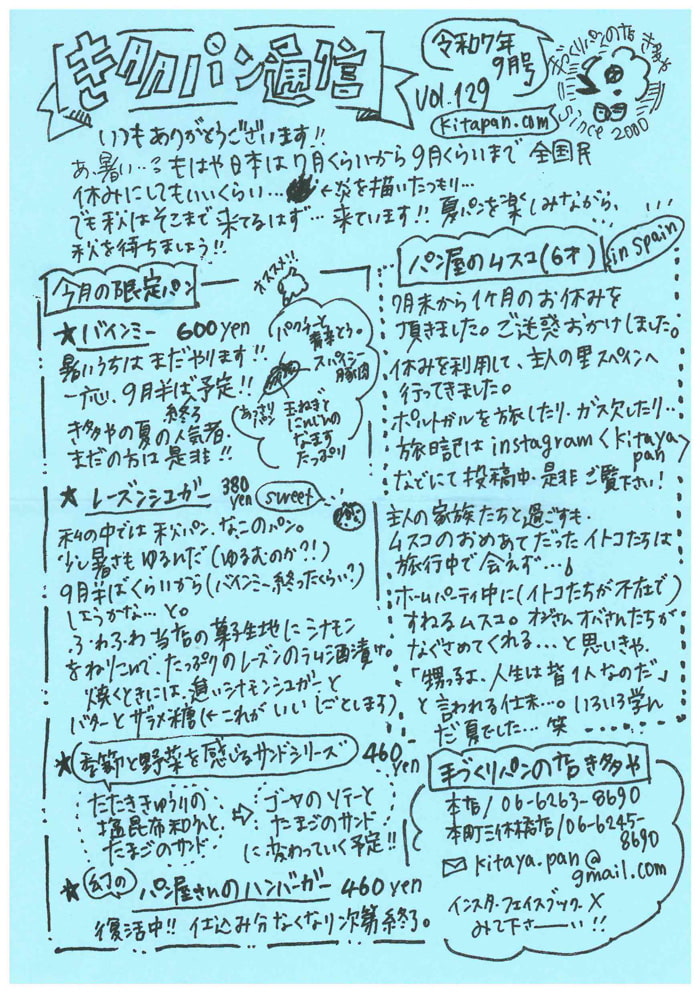 きタタパン通信
令和7年
9月号
Vol.129
kitapan.com
手づくりパンの店 き多や
since 2000
いつもありがとうございます!!
あ、暑い…
もはや日本は7月くらいから9月くらいまで 全国民
休みにしてもいいくらい…
←炎を描いたつもり…
でも秋はそこまで来てるはず…来ています!! 夏パンを楽しみながら、
秋を待ちましょう!!
今月の限定パン
オススメ!!
★バインミー 600yen
暑いうちは まだやります!!
一応、9月半ば予定!!
終る
き多やの夏の人気者、
まだの方は是非!!
パクチーと
スパイシー
豚肉
あっさり
パン
玉ねぎと
にんじんの
なます
たっぷり
★ レーズンシュガー 380
yen
sweet
私の中では 秋パン、なこのパン。
少し暑さもゆるんだ(ゆるむのか?!)
9月半ばくらいから(バインミー終ったくらい?)
しようかな…と。
ふわふわ当店の菓子生地にシナモン
をねりこんで、たっぷりのレーズンのラム酒漬け。
焼くときには、追いシナモンシュガーと
バターとザラメ糖(←これがいいしごとします)
★季節と野菜を感じるサンドシリーズ 460
yen
たたききゅうりの
塩昆布和えと
たまごのサンド
⇨
ゴーヤのソテーと
たまごのサンド
に変わっていく予定!!
★幻の パン屋さんのハンバーガー 460yen
復活中!! 仕込み分なくなり次第終了。
パン屋のムスコ(6才)
in Spain
7月末から1ヶ月のお休みを
頂きました。ご迷惑おかけしました。
休みを利用して、主人の里スペインへ
行ってきました。
ポルトガルを旅したり・ガス欠したり…
旅日記はinstagram<kitaya
pan>
などにて投稿中、是非ご覧下さい!
主人の家族たちと過ごすも、
ムスコのおめあてだったイトコたちは
旅行中で会えず…
ホームパーティ中に(イトコたちが不在で)
すねるムスコ。オジさんオバさんたちが
なぐさめてくれる…と思いきや、
「甥っ子よ、人生は皆1人なのだ」
と言われる仕末…。いろいろ学ん
だ夏でした…笑
手づくりパンの店き多や
本店/06-6263-8690
本町三休橋店/06-6245-
8690
kitaya.pan@
gmail.com
インスタ・フェイスブック・X
みて下さーーい!!